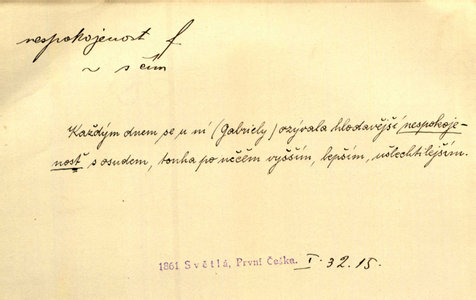 nespokojenost f
~ s čím
Každým dnem se u ní (Gabriely) ozývala hlodavější nespokoje-
nost s osudem, touha po něčem vyšším, lepším, ušlechtilejším.
1861 Světlá, První Češka. I. 32. 15.